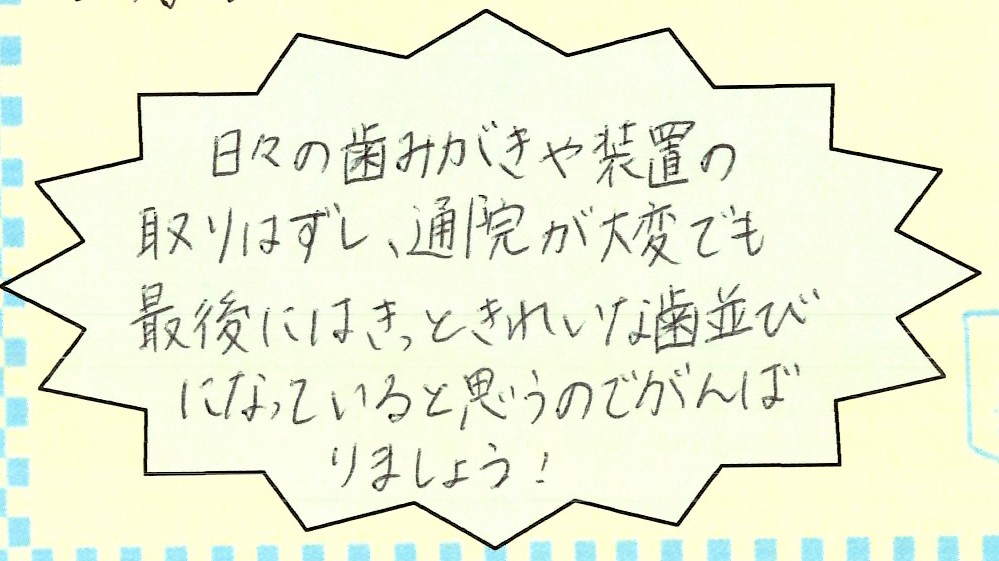 日々の歯みがきや装置の
取りはずし、通院が大変でも
最後にはきっときれいな歯並び
になっていると思うのでがんば
りましょう!